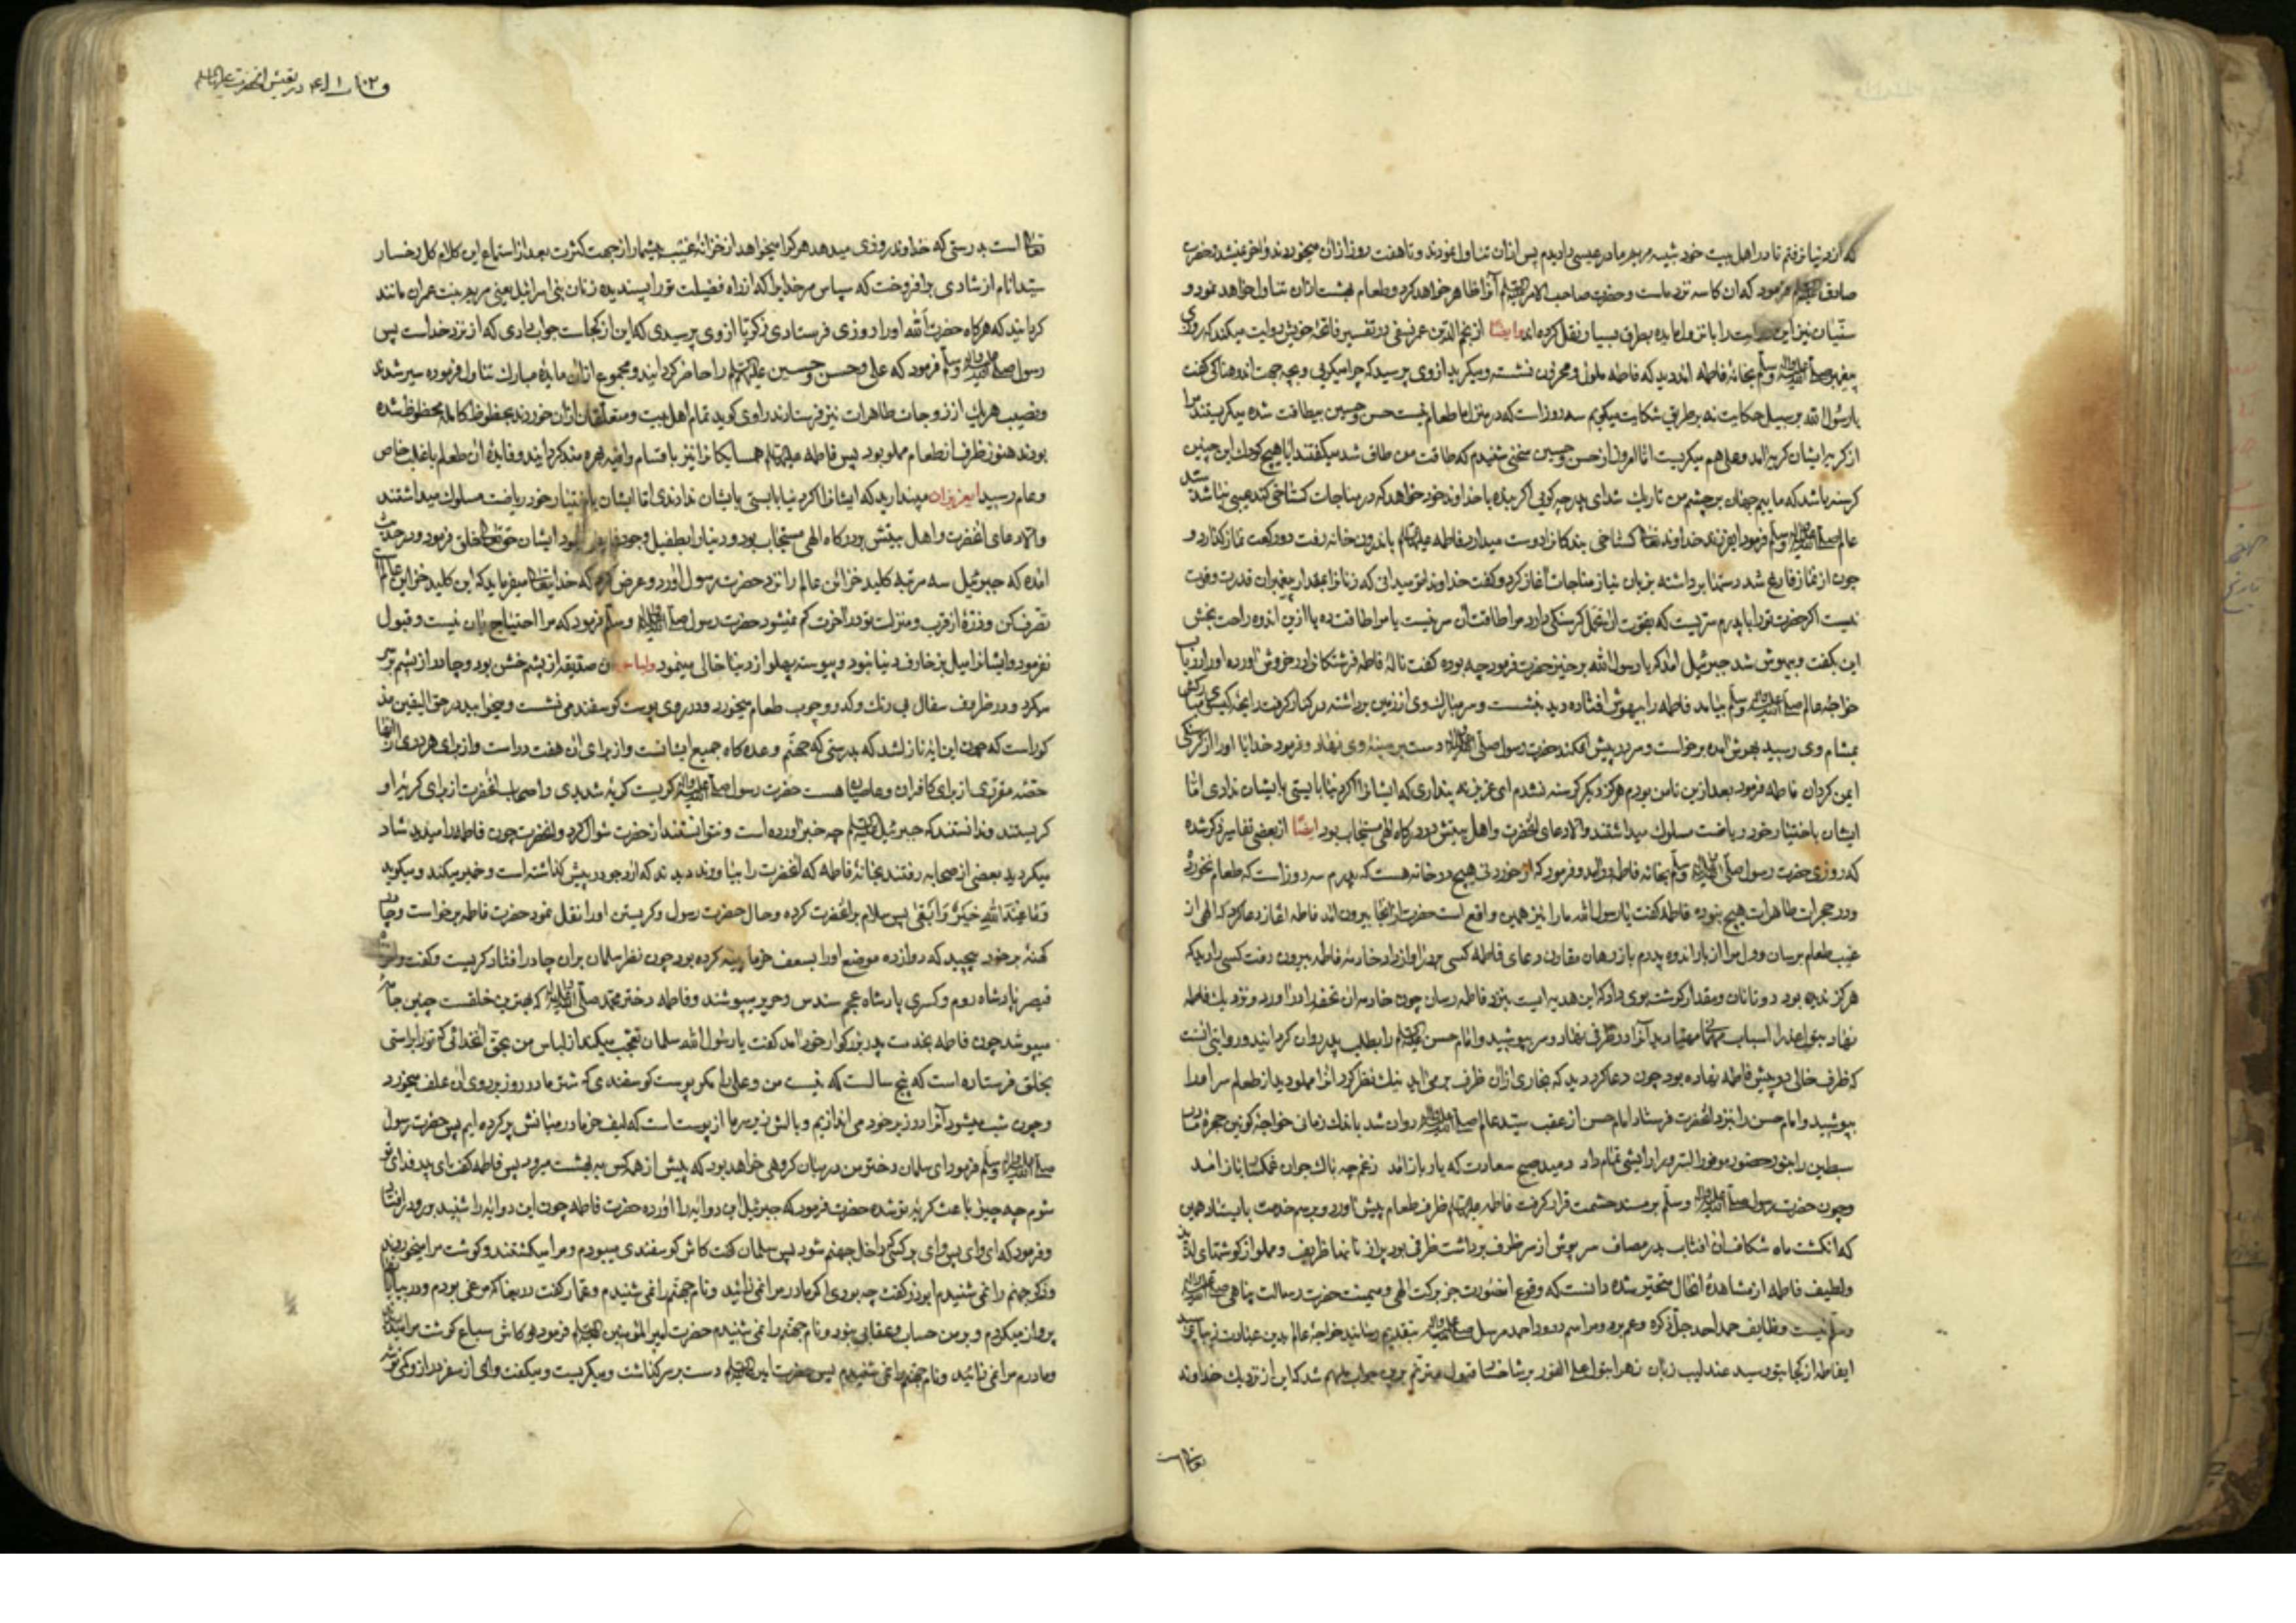 که از دنیا نرفتم تا در اهل بیت خود شبیه مریم مادر عیسی را دیدم پس ازان تناول نمودند و تا هفت روز ازان میخوردند و آخر نمیشد حضرت
صادق فرمود که ان کاسه نزد ماست و حضرت صاحب الامر آنرا ظاهر خواهد کرد و طعام بهشت ازان تناول خواهد نمود و
سنّیان نیز این را با نزول مایده بطرق بسیار نقل کرده اند وایضًا از نجم الدین عمر نسفی در تفسیر فاتحهٔ خویش روایت میکند که روزی
پیغمبر صلی الله علیه واله وسلم بخانهٔ فاطمه آمد دید که فاطمه ملول و محزون نشسته و میگرید از وی پرسید که چرا میگریی و بچه جهت اندوهناکی گفت
یا رسول الله بر سبیل حکایت نه بر طریق شکایت میگویم سه روز است که در منزل ما طعام نیست حسن و حسین بیطاقت شده میگریستند مرا
از گریهٔ ایشان گریه آمد و علی هم میگریست اما امروز از حسن و حسین سخنی شنیدم که طاقت من طاق شد میگفتند ایا هیچ کودک این چنین
گرسنه باشد که ماییم جهان بر چشم من تاریک شد ای پدر چه گویی اگر بنده با خداوند خود خواهد که در مناجات گستاخی کند عیبی نباشد سید
عالم صلی الله علیه واله وسلم فرمود ای فرزند خداوند تعالی گستاخی بندگانرا دوست میدارد فاطمه علیها السلام باندرون خانه رفت دو رکعت نماز گذارد و
چون از نماز فارغ شد دستها برداشته بزبان نیاز مناجات آغاز کرد و گفت خداوندا تو میدانی که زنانرا بمقدار پیغمبران قدرت و قوت
نیست اگر حضرت تو را با پدرم سرّیست که بقوت ان تحمل گرسنگی دارد مرا طاقت ان سر نیست یا مرا طاقت ده یا ازین اندوه راحت بخش
این بگفت و بیهوش شد جبرئیل آمد که یا رسول الله برخیز حضرت فرمود چه بوده گفت نالهٔ فاطمه فرشتگانرا در خروش اورده او را دریاب
خواجهٔ عالم صلی الله علیه واله وسلم بیامد فاطمه را بیهوش افتاده دید بنشست و سر مبارک وی از زمین برداشته در کنار گرفت رایحهٔ
بمشام وی رسید بهوش آمده برخواست و سر در پیش افکند حضرت رسول صلی الله علیه واله دست بر سینهٔ وی نهاد و فرمود خدایا او را از گرسنگی
ایمن گردان فاطمه فرمود بعد ازین تا من بودم هرگز دیگر گرسنه نشدم ای عزیز نه پنداری که ایشانرا اگر دنیا بایستی بایشان ندادی امّا
ایشان باختیار خود ریاضت مسلوک میداشتند والا دعای آنحضرت و اهل بیتش در درگاه الهی مستجاب بود ایضًا از بعضی تفاسیر ذکر شده
که روزی حضرت رسول صلی الله علیه واله وسلم بخانه فاطمه در آمد و فرمود که از خوردنی هیچ در خانه هست که پدرم سه روز است که طعام نخورده
و در حجرات طاهرات هیچ نبوده فاطمه گفت یا رسول الله ما را نیز همین واقع است حضرت از آنجا بیرون آمد فاطمه آغاز دعا کرد که الهی از
غیب طعام برسان و مرا از بار اندوه پدرم باز رهان مقارن دعای فاطمه کسی مر او را آواز داد خادمهٔ فاطمه بیرون رفت کسی را دید که
هرگز ندیده بود دو تا نان و مقدار گوشت بوی داد که این هدیه ایست بنزد فاطمه رسان چون خادمه ان تحفه را در اورد و نزدیک فاطمه
نهاد بتول عذرا اسباب مهمانی مهیا دید آنرا در ظرفی نهاد و سر بپوشید و امام حسن را بطلب پدر روان گردانید و روایتی انست
که ظرف خالی در پیش فاطمه نهاده بود چون دعا کرد دید که بخاری ازان ظرف بر می آید نیک نظر کرد آنرا مملو دید از طعام سر آنرا
بپوشید و امام حسن را بنزد آنحضرت فرستاد امام حسن از عقب سید عالم صلی الله علیه واله روان شد باندک زمانی خواجهٔ کونین حجرهٔ مادر
سبطین را بنور حضور موفور السرور ارایشی تمام داد دمید صبح سعادت که یار باز آمد
و چون حضرت رسول صلی الله علیه واله وسلم بر مسند حشمت قرار گرفت فاطمه علیها السلام ظرف طعام پیش اورد و برسم خدمت بایستاد همین
که انگشت ماه شکاف ان افتاب بدر مصاف سر پوش از سر ظرف برداشت ظرفی بود پر از نانها ظریف و مملو از گوشتهای لذیذ
و لطیف فاطمه از مشاهدهٔ انحال متحیر شده دانست که وقوع انصورت جز برکت الهی و میمنت حضرت رسالت پناهی صلی الله علیه واله
وسلم نیست وظایف حمد احد جل ذکره و مراسم درود احمد مرسل صلی الله علیه واله بتقدیم رسانید خواجهٔ عالم بدین عبارت پرسید
ایفاطمه از کجا بتو رسید عندلیب زبان زهرا بتول علی الفور بر شاخسار قبول مترنم برین جواب ملهم شد که این از نزدیک خداوند
تعالی است
در تعیش انحضرت علیها السلام
تعالی است بدرستی که خداوند روزی میدهد هر کرا میخواهد از خزانهٔ غیب بیشمار از جهت کثرت بعد از استماع این کلام کل رخسار
سید انام از شادی بر افروخت که سپاس مر خدایرا که از راه فضیلت تو را پسندیده زنان بنی اسرائیل یعنی مریم بنت عمران مانند
گردانید که هرگاه حضرت الله او را روزی فرستادی زکریا از وی پرسیدی که این از کجاست جواب دادی که از نزد خداست پس
رسول صلی الله علیه واله وسلم فرمود که علی و حسن و حسین علیهم السلام را حاضر گردانیدند و مجموع ازان مایدهٔ مبارک تناول فرموده سیر شدند
و نصیب هر یک از زوجات طاهرات نیز فرستادند راوی گوید تمام اهل بیت و متعلقان ازان خوردند بحظوظ کامله محظوظ شده
بودند هنوز ظرف از طعام مملو بود پس فاطمه علیها السلام همسایگانرا نیز باقسام وافیه بهره مند گردانید و فایدهٔ ان طعام باغلب خاص
و عام رسید ایعزیزان مپندارید که ایشانرا اگر دنیا بایستی بایشان ندادندی امّا ایشان باختیار خود ریاضت مسلوک میداشتند
والا دعای آنحضرت و اهل بیتش در درگاه الهی مستجاب بود و دنیا را بطفیل وجود ایشان حق تعالی خلق فرمود و در حدیث
آمده که جبرئیل سه مرتبه کلید خزائن عالم را نزد حضرت رسول آورد و عرض کرد که خدایتعالی میفرماید که این کلید خزاین عالم
تصرف کن و ذرهٔ از قرب و منزلت تو در آخرت کم نمیشود حضرت رسول صلی الله علیه واله وسلم فرمود که مرا احتیاج بان نیست و قبول
نفرمود و ایشانرا میل بزخارف دنیا نبود و پیوسته پهلو از دنیا خالی مینمود ان صدیقه از پشم خشن بود و چادر از پشم بر سر
میکرد و در ظروف سفال بی رنگ و کدو و چوب طعام میخورد و در روی پوست گوسفند می نشست و میخوابید در حق الیقین مذ
کور است که چون این آیه نازل شد که بدرستی که جهنّم وعده گاه جمیع ایشانست و از برای ان هفت در است و از برای هر دری از انها
حصّه مقرری از برای کافران و عاصیان هست حضرت رسول صلی الله علیه واله گریست گریهٔ شدیدی و اصحاب آنحضرت از برای گریهٔ او
گریستند و ندانستند که جبرئیل چه خبر آورده است و نتوانستند از حضرت سؤال کرد و آنحضرت چون فاطمه را میدید شاد
میگردید بعضی از صحابه رفتند بخانهٔ فاطمه که آنحضرت را بیاورند دیدند که آرد جو در پیش گذاشته است و خمیر میکند و میگوید
وَمَا عِنْدَ اللهِ خَیْرٌ وَأَبْقَی پس سلام بر آنحضرت کرده و حال حضرت رسول و گریستن او را نقل نمود حضرت فاطمه برخواست و چادر
کهنهٔ بر خود پیچید که دوازده موضع او را بسعف خرما پینه کرده بود چون نظر سلمان بران چادر افتاد گریست و گفت
قیصر پادشاه روم و کسری پادشاه عجم سندس و حریر بپوشند و فاطمه دختر محمد صلی الله علیه واله که بهترین خلقست چنین جامه
میپوشد چون فاطمه بخدمت پدر بزرگوار خود آمد گفت یا رسول الله سلمان تعجب میکند از لباس من بحق آنخدائی که تو را براستی
بخلق فرستاده است که پنج سالست که نیست من و علی را مگر پوست گوسفندی که شتر ما در روز بر روی ان علف میخورد
و چون شب میشود آنرا در زیر خود می اندازیم و بالش زیر سر ما از پوست است که لیف خرما در میانش پر کرده ایم پس حضرت رسول
صلی الله علیه واله وسلم فرمود ای سلمان دختر من در میان گروهی خواهد بود که پیش از همه کس به بهشت میرود پس فاطمه گفت ای پدر فدای تو
شوم چه چیز باعث گریهٔ تو شده حضرت فرمود که جبرئیل این دو آیه را آورده حضرت فاطمه چون این دو آیه را شنید برو در افتاد
و فرمود که ای وای پس وای بر کسی که داخل جهنم شود پس سلمان گفت کاش گوسفندی میبودم و مرا میکشتند و گوشت مرا میخوردند
و ذکر جهنم را نمی شنیدم ابوذر گفت چه بودی اگر مادر مرا نمی زائید و نام جهنّم را نمی شنیدم و عمار گفت دریغا که مرغی بودم و در بیابانها
پرواز میکردم و بر من حساب و عقابی نبود و نام جهنّم را نمی شنیدم حضرت امیر المؤمنین فرمود که کاش سباع گوشت مرا میدریدند
و مادرم مرا نمی زائید و نام جهنم را نمی شنیدم پس حضرت امیر دست بر سر گذاشت و میگریست و میگفت وای از سفر دراز و کمی توشه